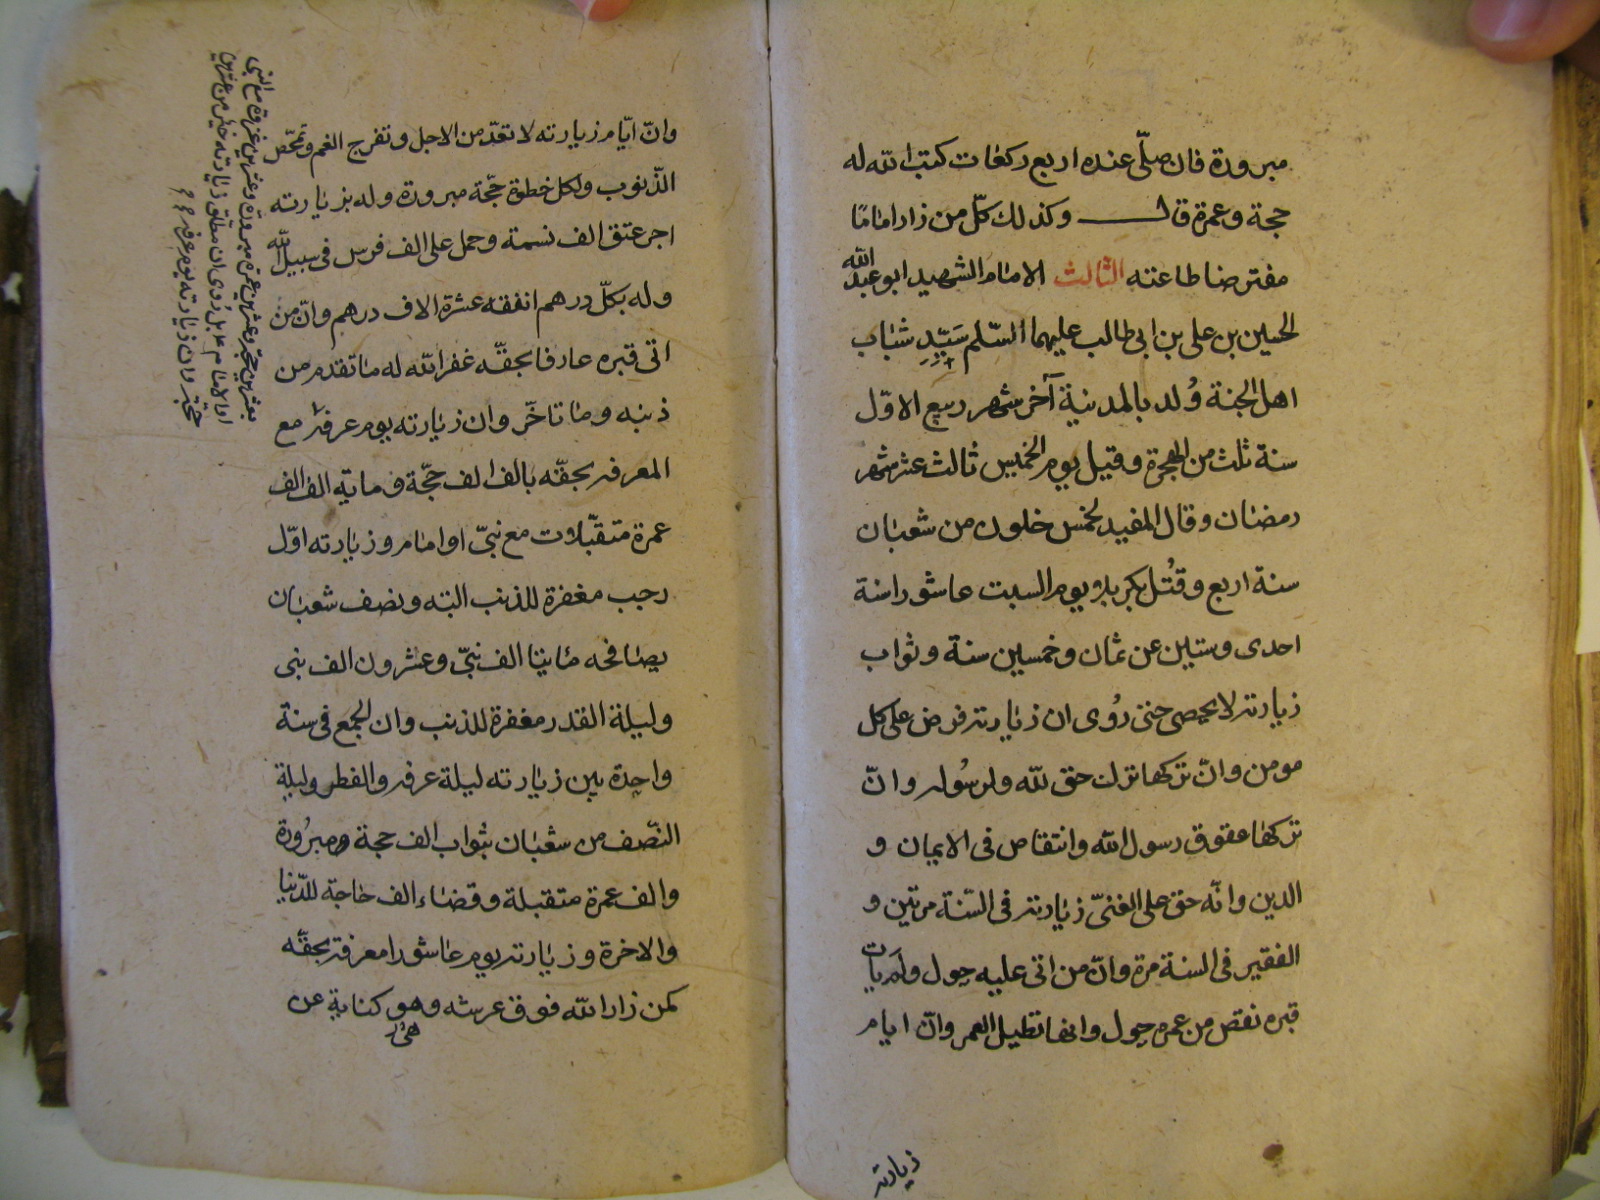 مبرورة فان صلّى عنده اربع ركعات كتب الله له
حجة وعمرة قال وكذلك كلّ من زار امامًا
مفترضا طاعته الثالث الامام الشهيد ابو عبد الله
الحسين بن على بن ابى طالب عليهما السّلم سَيّدِ شباب
اهل الجنة وُلد بالمدينة آخر شهر ربيع الاوّل
سنة ثلث من الهجرة وقيل يوم الخميس ثالث عشر شهر
رمضان وقال المفيد لخمس خلون من شعبان
سنة اربع وقُتل بكربلا يوم السبت عاشورا سنة
احدى وستين عن ثمان وخمسين سنة وثواب
زيارته لا يحصى حتى رُوى ان زيارته فرض على كل
مومن وانّ تركها ترك حق لله ولرسُوله وانّ
تركها عقوق رسول الله وانتقاص فى الايمان و
الدين وانّه حق على الغنىّ زيارته فى السّنة مرتين و
الفقير فى السنة مرة وانّ من اتى عليه حول ولم يات
قبره نقص من عمره حول وانها تطيل العمر وانّ ايام
زيارته
وانّ ايّام زيارته لا تعدّ من الاجل وتفرج الغم وتمحّص
الذّنوب ولكل خطوة حّجة مبرورة وله بزيارته
اجر عتق الف نسمة وحمل على الف فرس فى سبيل الله
وله بكلّ درهم انفقه عشرة الاف درهم وانّ من
اتى قبره عارفا بحقّه غفر الله له ما تقدم من
ذنبه وما تاخّر وان زيارته يوم عرفة مع
المعرفه بحقّه بالف الف حّجة و ماية الف الف
عمرة متقبّلات مع نبىّ او امام وزيارته اوّل
رجب مغفرة للذنب البته ونصف شعبان
يصافحه مائتا الف نبىّ وعشرون الف نبى
وليلة القدر مغفرة للذنب وان الجمع فى سنة
واحدة بين زيارته ليلة عرفه والفطر وليلة
النّصف من شعبان بثواب الف حجة ومبرُورة
والف عمرة متقبلة وقضاء الف حاجة للدّنيا
والاخرة وزيارته يوم عاشورا معرفة بحقّه
كمن زار الله فوق عرشه وهو كناية عن
بعشرين حجة وعشرين عمرة مبرورة وعشرين غزوة مع النبى
او الامام بل رُوى ان مطلق زيارته خير من عشرين
حجّة وان زيارته يوم عرفه